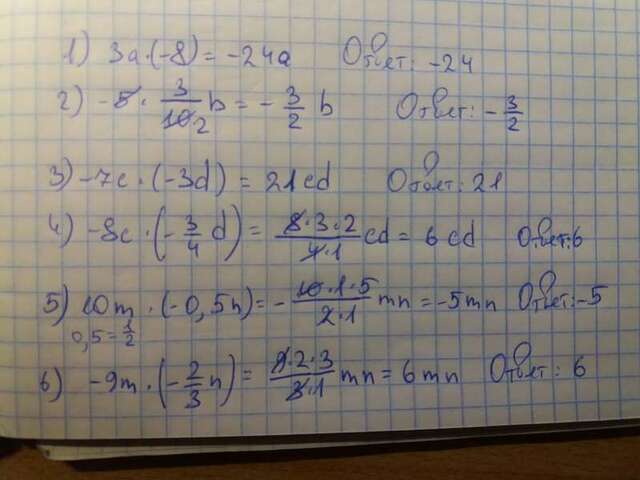 1) 3a·(-8) = -24a Ответ: -24
2) -5 · 3/10 2 b = - 3/2 b Ответ: - 3/2
3) -7c · (-3d) = 21cd Ответ: 21
4) -8c · (- 3/4 d) = 8·3·2/4·1 cd = 6cd Ответ: 6
5) 10m · (-0,5n) = - 10·1·5/2·1 mn = -5mn Ответ: -5
0,5 = 1/2
6) -9m · (- 2/3 n) = 9·2·3/3·1 mn = 6mn Ответ: 6